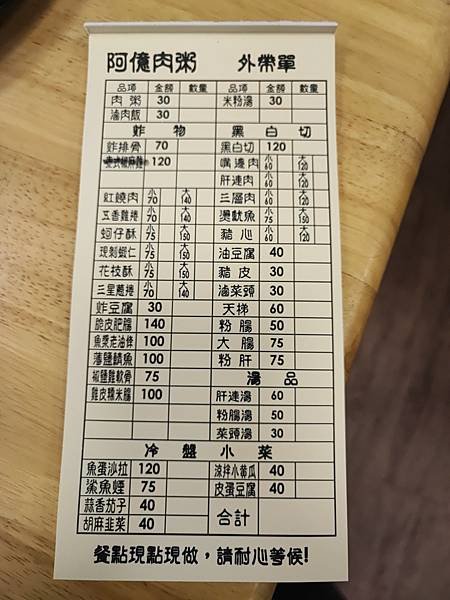 阿億肉粥 外帶單
品項 金額 數量 品項 金額 數量
肉粥 30 米粉湯 30
滷肉飯 30
炸物 黑白切
炸排骨 70 黑白切 120
120 嘴邊肉 小60 大120
肝連肉 小60 大120
紅燒肉 小70 大140 三層肉 小60 大120
五香雞捲 小70 大140 燙魷魚 小75 大150
蚵仔酥 小75 大150 豬心 小75 大150
現剝蝦仁 小75 大150 油豆腐 40
花枝酥 小75 大150 豬皮 30
三星蔥捲 小70 大140 滷菜頭 30
炸豆腐 30 天梯 60
脆皮肥腸 140 粉腸 50
魚漿老油條 100 大腸 75
薄鹽鯖魚 100 粉肝 75
椒鹽雞軟骨 75 湯品
雞皮糯米腸 100 肝連湯 60
粉腸湯 50
菜頭湯 30
冷盤小菜
魚蛋沙拉 120 涼拌小黃瓜 40
鯊魚煙 75 皮蛋豆腐 40
蒜香茄子 40 合計
胡麻韭菜 40
餐點現點現做，請耐心等候!